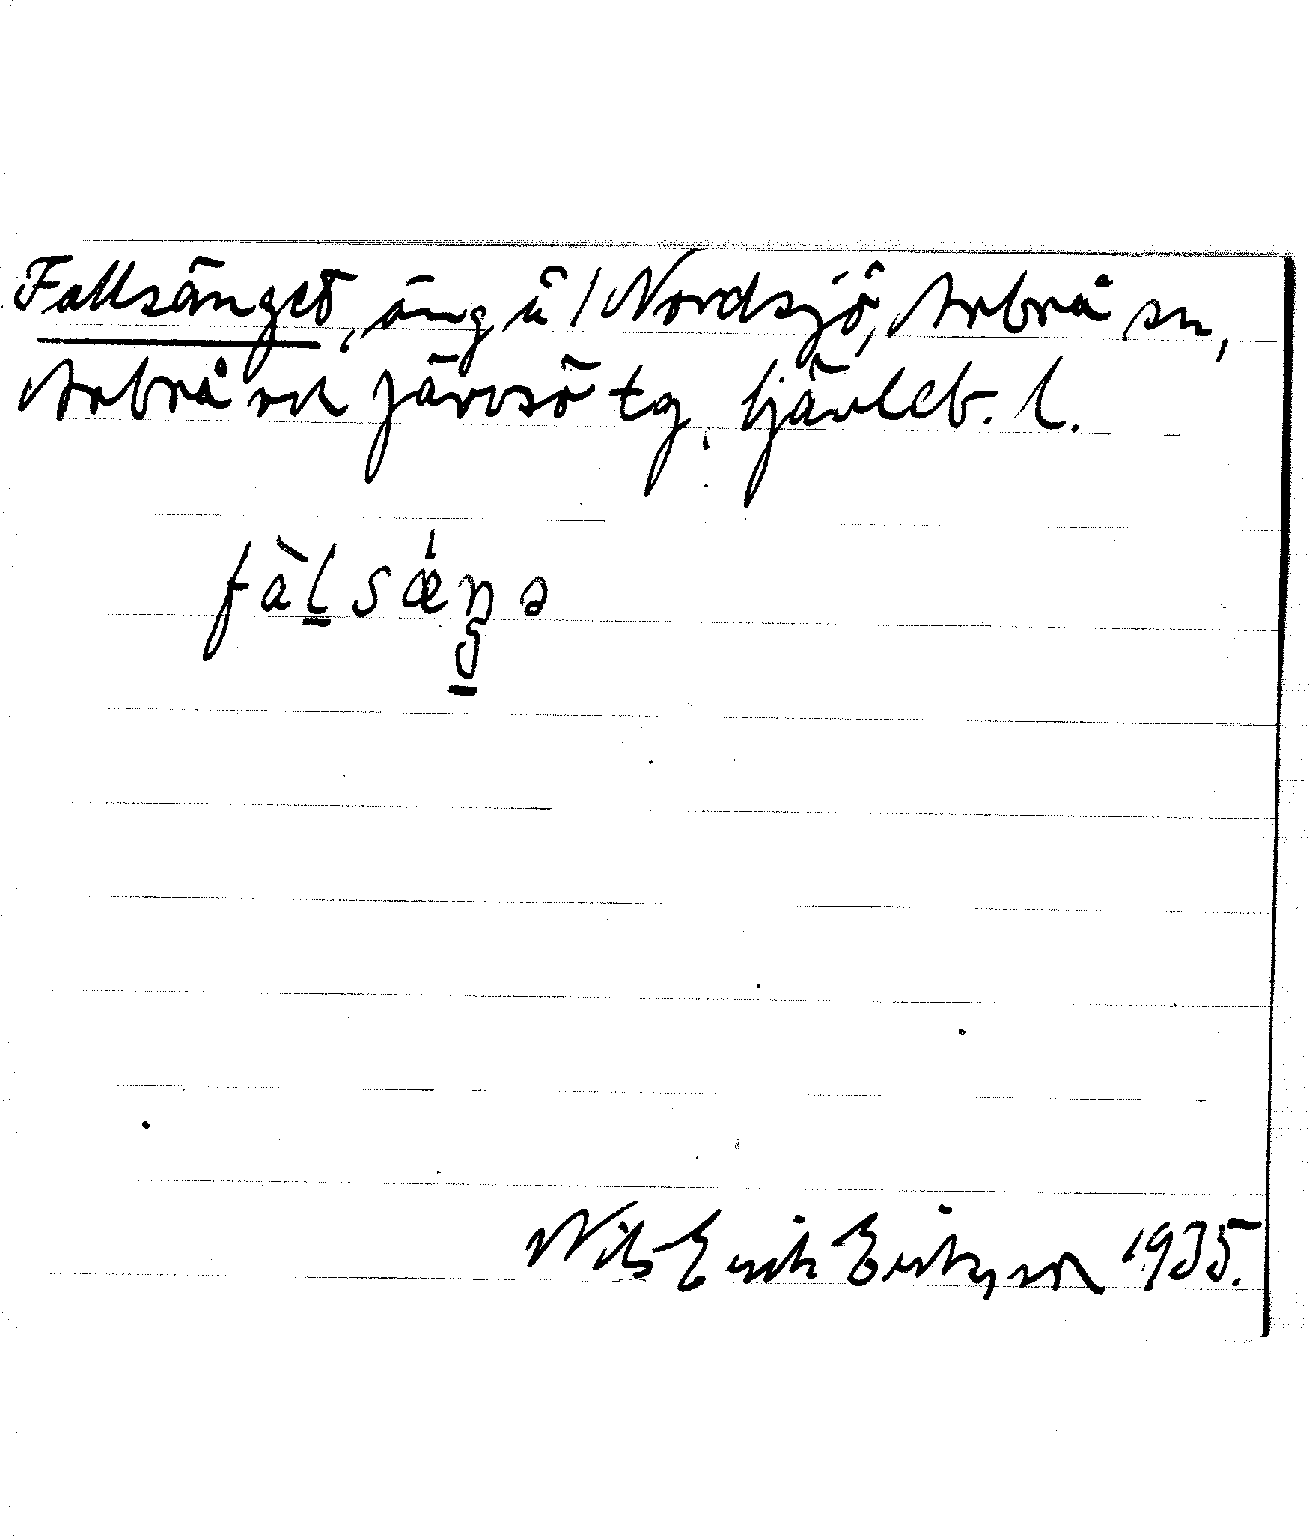 Fallsänget, äng å 1 Nordsjö, Arbrå sn,
Arbrå och Järvsö tg, Gävleb. l.
fàl̲sǽŋə
Nils Erik Eriksson 1935.